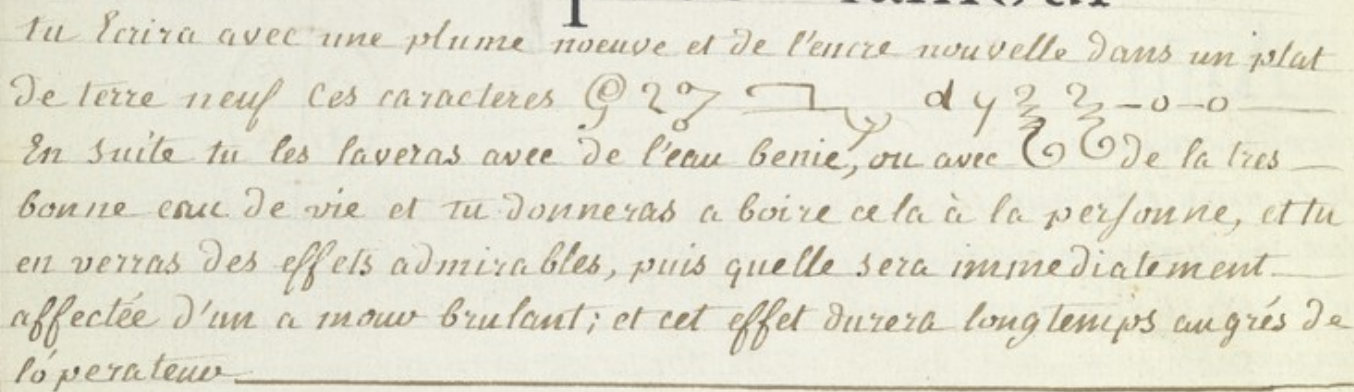 tu Ecrira avec une plume noeuve et de l'encre nouvelle dans un plat
de terre neuf Ces caracteres
En suite tu les laveras avec de l'eau benie, ou avec de la tres
bonne eau de vie et tu donneras a boire cela à la personne, et tu
en verras des effets admirables, puis quelle sera immediatement
affectée d'un a mour brulant; et cet effet durera longtemps au grés de
l'óperateur